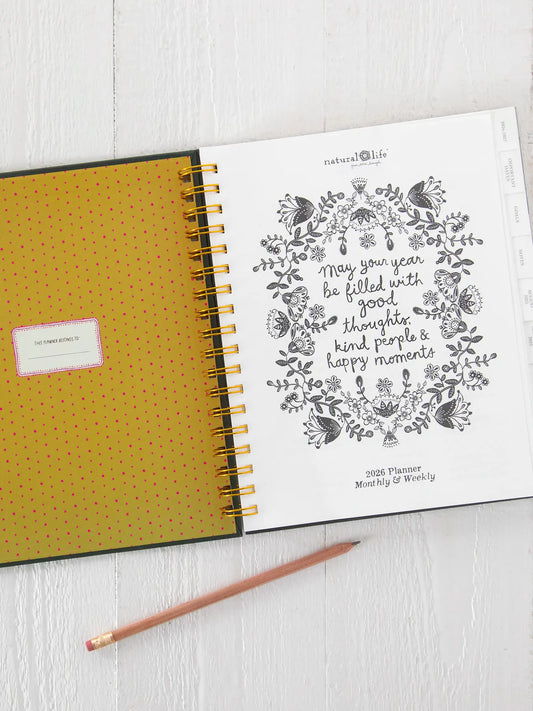 THIS PLANNER BELONGS TO:
natural life®
May your year
be filled with
good
thoughts,
kind people &
happy moments
2026 Planner
Monthly & Weekly
IMPORTANT
DATES
GOALS
NOTES